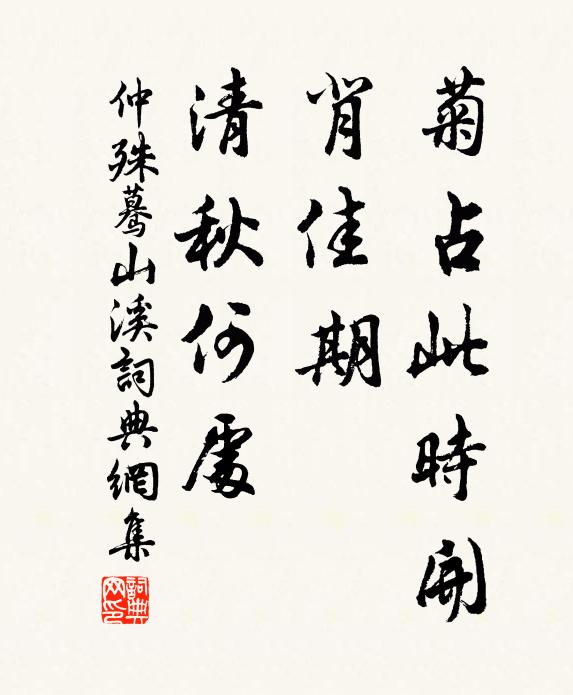 菊占此時開
肖佳期
清秋何處
仲殊驀山溪詞典網集
詞典網印